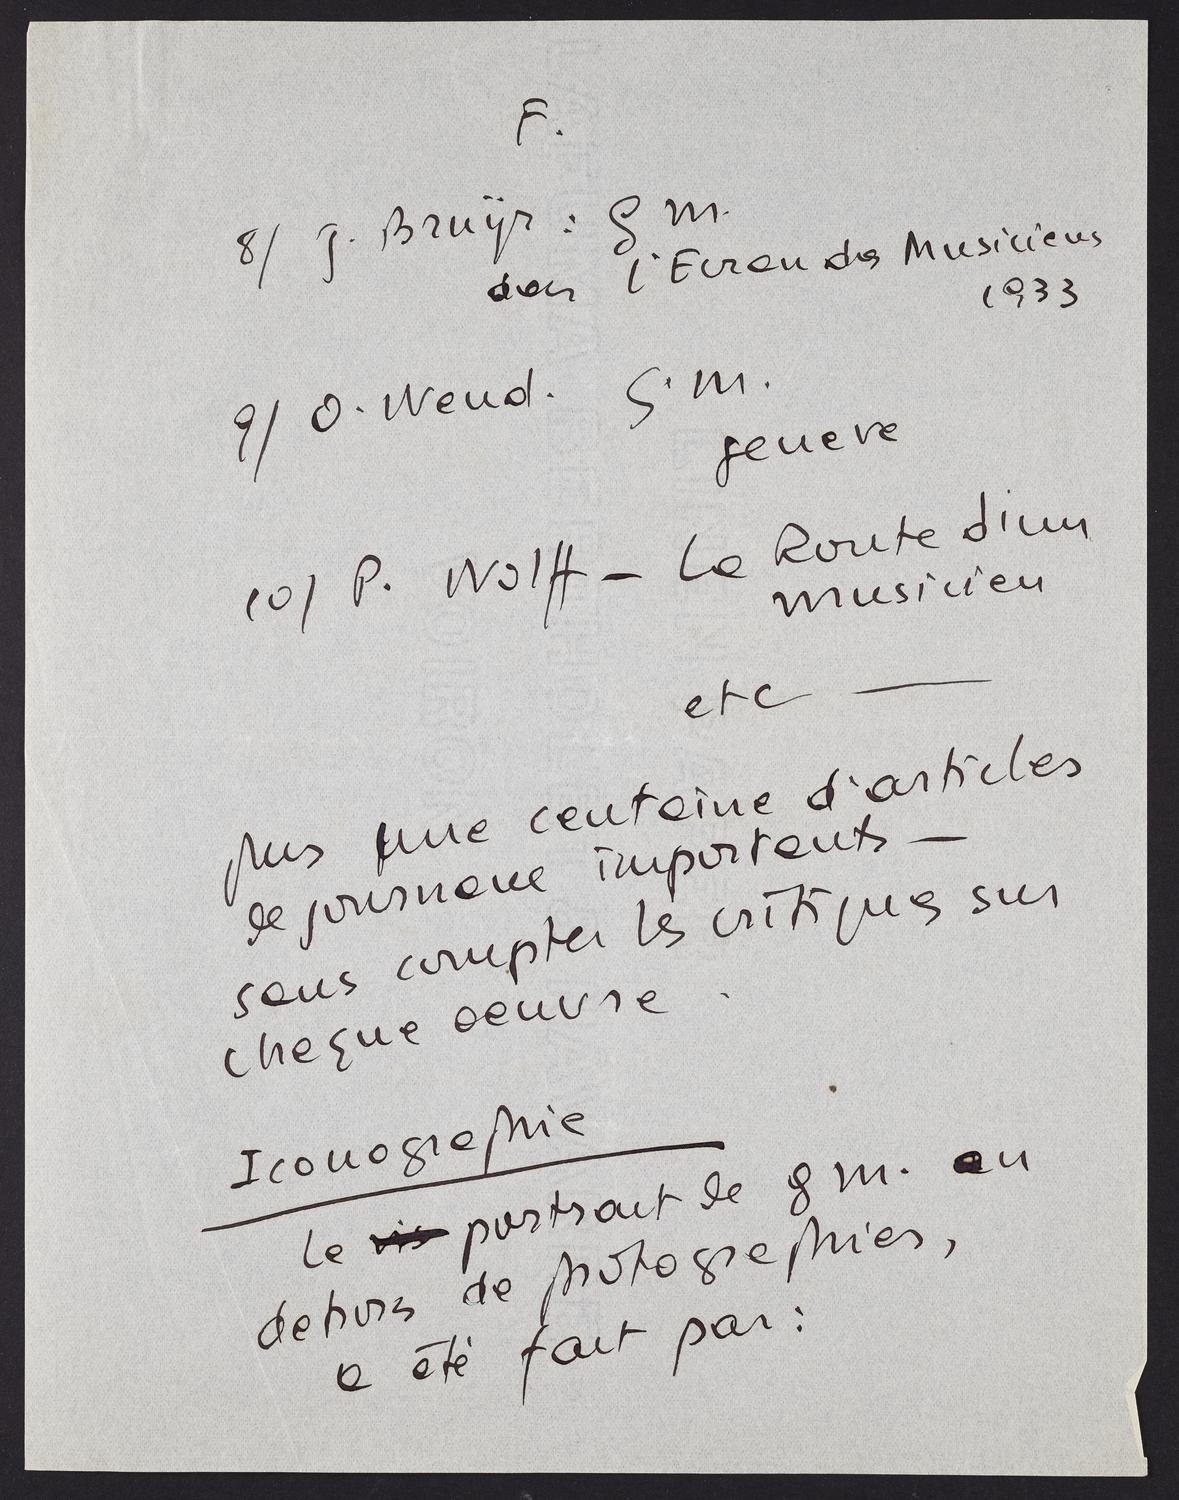 F.
8/ J. Bruÿr : G m.
dans l'Ecran des Musiciens
1933
9/ O. Wend. G. m.
geneve
10/ P. Wolff – La Route d'un
musicien
etc —
plus une centaine d'articles
de journaux importants —
sans compter les critiques sur
chaque oeuvre.
Iconographie
Le portrait de g m. en
dehors de photographies,
a été fait par :